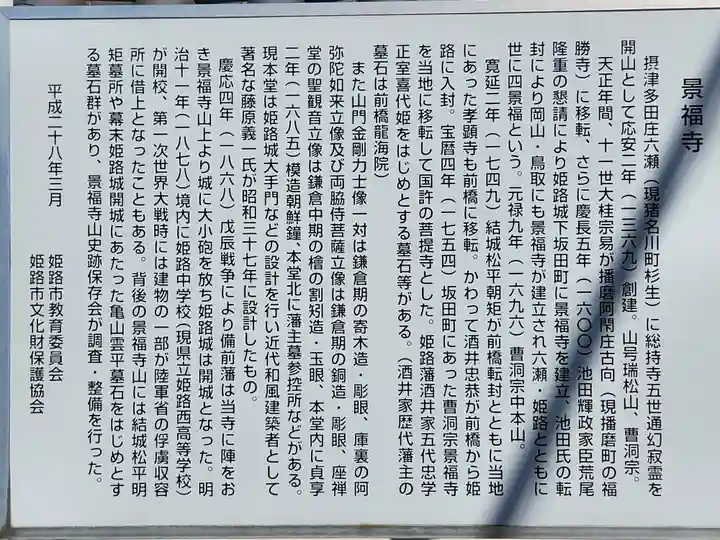 景福寺
摂津多田庄六瀬（現猪名川町杉生）に総持寺五世通幻寂霊を
開山として応安二年（一三六九）創建。山号瑞松山、曹洞宗。
天正年間、十一世大桂宗易が播磨阿閇庄古向（現播磨町の福
勝寺）に移転、さらに慶長五年（一六〇〇）池田輝政家臣荒尾
隆重の懇請により姫路城下坂田町に景福寺を建立、池田氏の転
封により岡山・鳥取にも景福寺が建立され六瀬・姫路とともに
世に四景福という。元禄九年（一六九六）曹洞宗中本山。
寛延二年（一七四九）結城松平朝矩が前橋転封とともに当地
にあった孝顕寺も前橋に移転。かわって酒井忠恭が前橋から姫
路に入封。宝暦四年（一七五四）坂田町にあった曹洞宗景福寺
を当地に移転して国許の菩提寺とした。姫路藩酒井家五代忠学
正室喜代姫をはじめとする墓石等がある。（酒井家歴代藩主の
墓石は前橋龍海院）
また山門金剛力士像一対は鎌倉期の寄木造・彫眼、庫裏の阿
弥陀如来立像及び両脇侍菩薩立像は鎌倉期の銅造・彫眼、座禅
堂の聖観音立像は鎌倉中期の檜の割矧造・玉眼、本堂内に貞享
二年（一六八五）模造朝鮮鐘、本堂北に藩主墓参控所などがある。
現本堂は姫路城大手門などの設計を行い近代和風建築者として
著名な藤原義一氏が昭和三十七年に設計したもの。
慶応四年（一八六八）戊辰戦争により備前藩は当寺に陣をお
き景福寺山上より城に大小砲を放ち姫路城は開城となった。明
治十一年（一八七八）境内に姫路中学校（現県立姫路西高等学校）
が開校、第一次世界大戦時には建物の一部が陸軍省の俘虜収容
所に借上となったこともある。背後の景福寺山には結城松平明
矩墓所や幕末姫路城開城にあたった亀山雲平墓石をはじめとす
る墓石群があり、景福寺山史跡保存会が調査・整備を行った。
平成二十八年三月
姫路市教育委員会
姫路市文化財保護協会